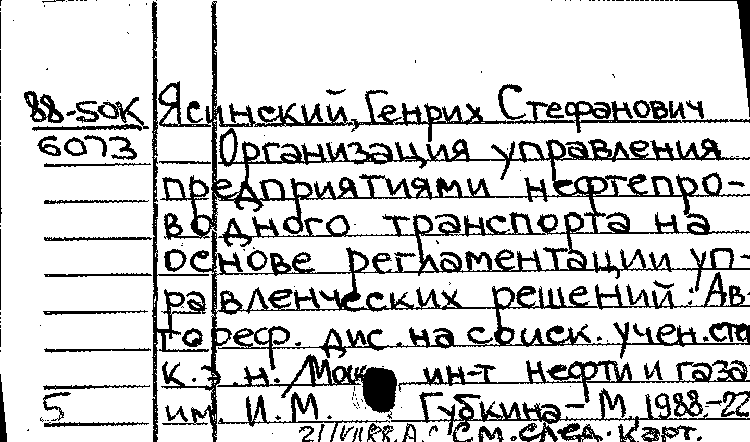 88-50K Ясинский, Генрих Стефанович
6073 Организация управления
предприятиями нефтепро-
водного транспорта на
основе регламентации уп-
равленческих решений: Ав-
тореф. дис. на соиск. учен. сте
к. э. н. / Моск ин-т нефти и газа
5 им. И. М. Губкина - М, 1988.-22
См. след. карт.